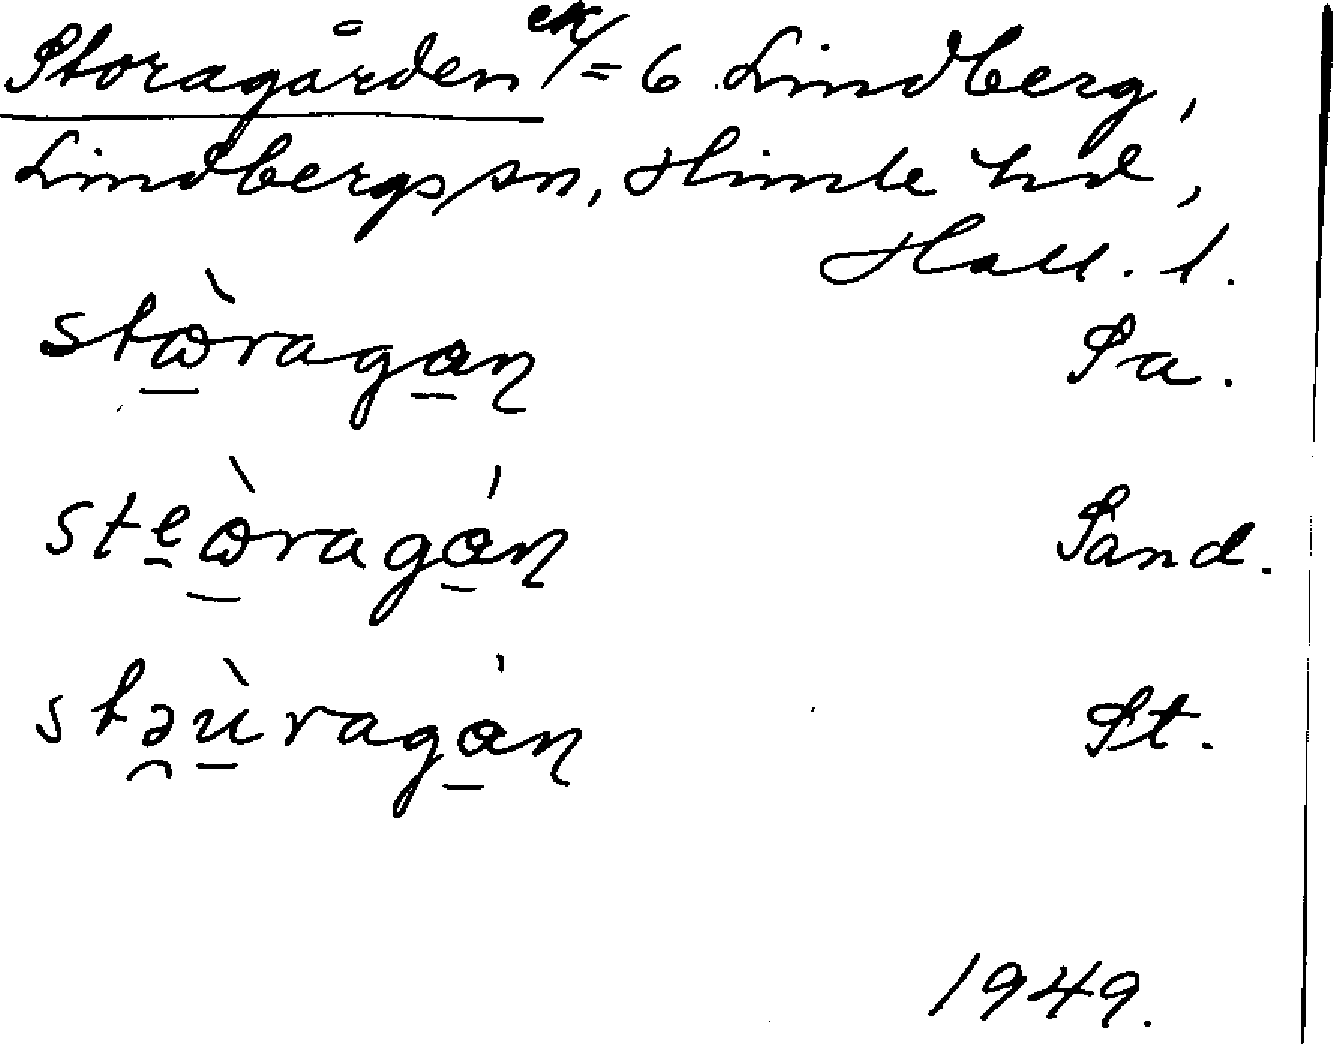 Storagården ek/= 6 Lindberg,
Lindbergs sn, Himle hd,
Hall. l.
stὼ̲raga̲ꞑ Sa.
ste̲ὼ̲ragá̲ꞑ Sand.
stə̯ù̲ragá̲ꞑ St.
1949.